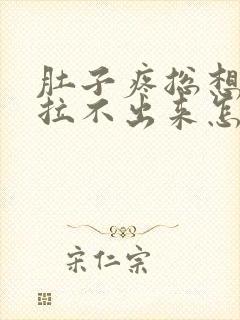 肚子疼总想
拉不出来怎
宋仁宗